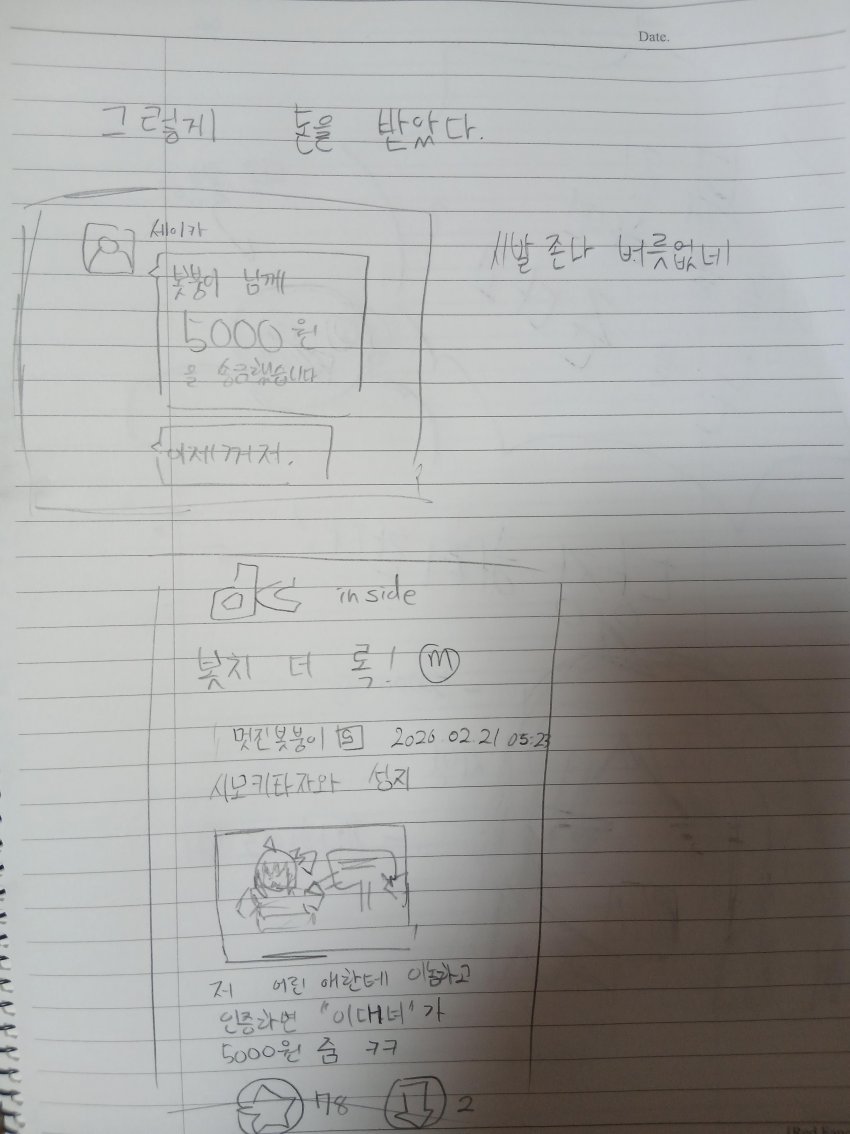 Date.
그렇게 돈을 받았다.
세이카
봇붕이 님께
5000원
을 송금했습니다
이제 꺼져.
시발 존나 버릇없네
inside
봇치 더 록! m
멋진봇붕이 2026.02.21 05:23
시모키타자와 성지
저 어린 애한테
인증하면 "이대녀"가
5000원 줌 ㅋㅋ
78 2